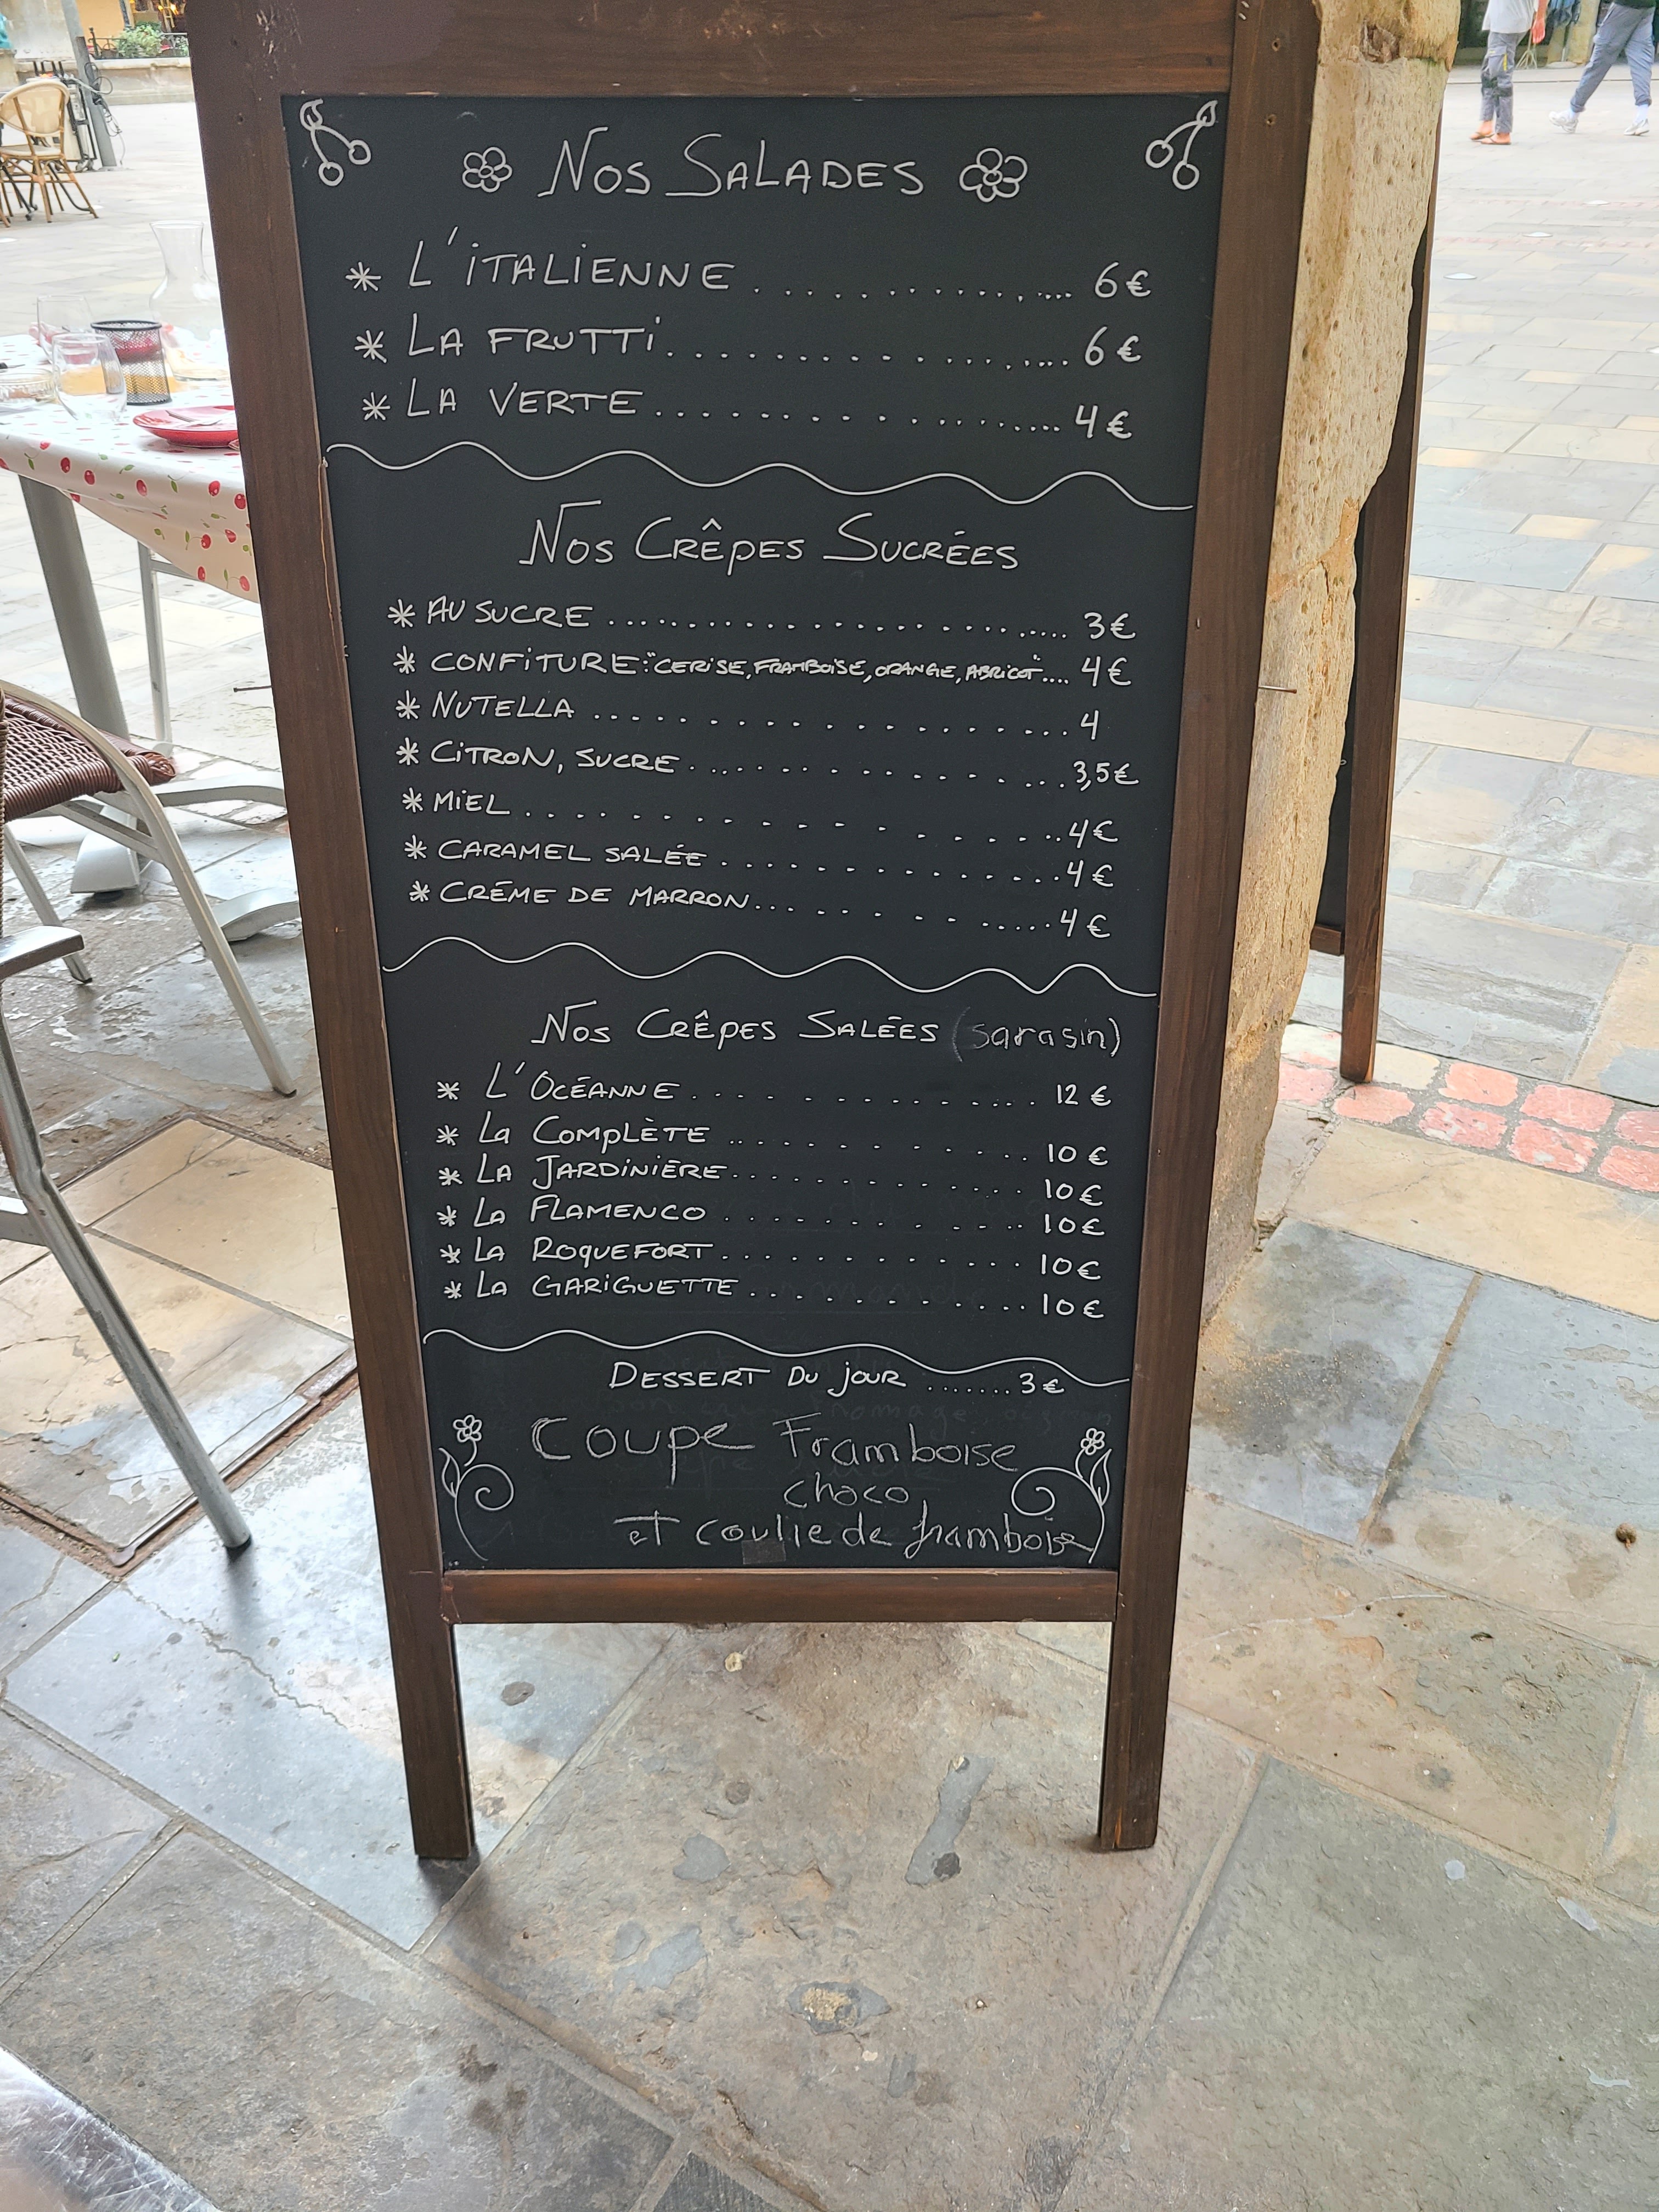 Nos Salades
* L'italienne ............... 6€
* La Frutti ................. 6€
* La Verte .................. 4€
Nos Crêpes Sucrées
* Au sucre .................. 3€
* Confiture: "cerise, framboise, orange, abricot".... 4€
* Nutella ................... 4
* Citron, sucre ............. 3,5€
* Miel ...................... 4€
* Caramel salée ............. 4€
* Créme de marron ........... 4€
Nos Crêpes Salées (sarasin)
* L'Océanne ................. 12 €
* La Complète ............... 10 €
* La Jardinière ............. 10 €
* La Flamenco ............... 10 €
* La Roquefort .............. 10 €
* La Gariguette ............. 10 €
Dessert du jour ....... 3 €
Coupe Framboise
choco
et coulie de framboise